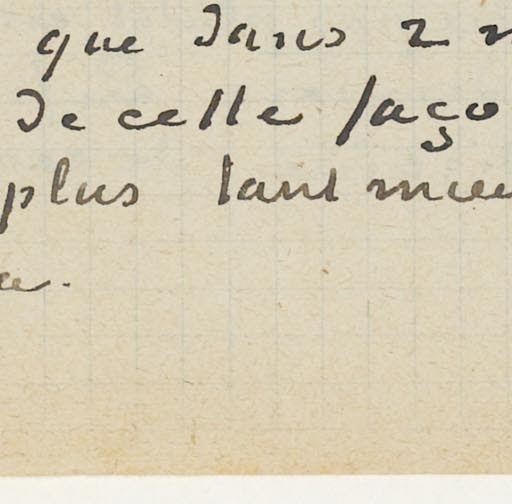 que dans 2
de cette faço
plus tant mieu